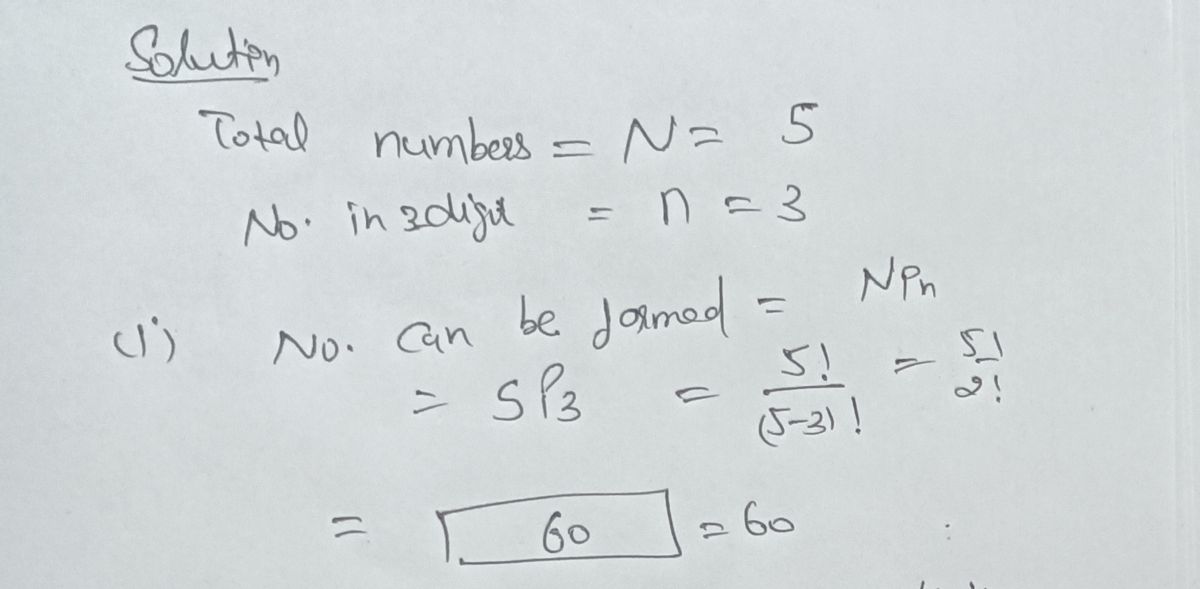 Solution
Total numbers = N = 5
No. in 3digit = n = 3
(i) No. can be formed = NPn
= 5P3 = 5!/(5-3)! = 5!/2!
= 60 = 60